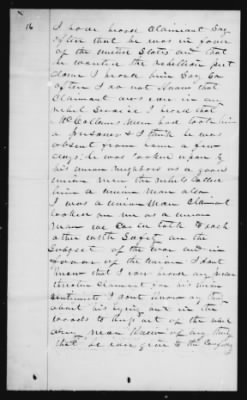 16 I have heard Claimant Say
often that he was in favor
of the United States and that
he wanted the rebellion put
down I heard him Say So
often I do not Know that
Claimant was ever in any
rebel Service I heard that
McCollums men had took him
a prisoner & I think he was
absent from home a few
days. he was looked upon by
his union neighbors as a good
union man the rebels called
him a union man also
I was a union man Claimant
looked on me as a union
man we could talk to each
other with Safety on the
Subject of the war and in
favor of the union I dont
know that I ever heard any person
threten Claimant for his union
sentiments I dont know any thing
about his lying out in the
woods to Keep out of the rebel
army never knew of any thing
that he ever give to the Confedy